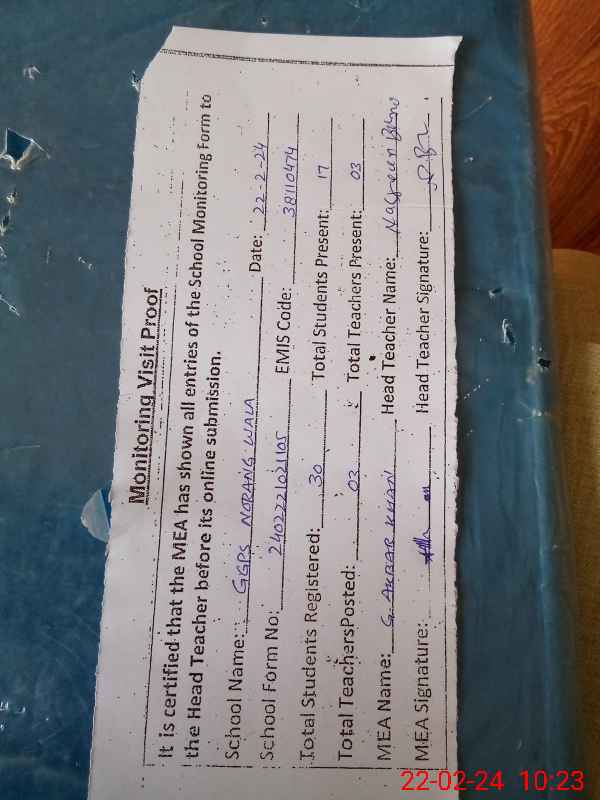 Monitoring Visit Proof
It is certified that the MEA has shown all entries of the School Monitoring Form to
the Head Teacher before its online submission.
School Name: GGPS NORANG WALA Date: 22-2-24
School Form No: 2402221021105 EMIS Code: 38110474
Total Students Registered: 30 Total Students Present: 17
Total TeachersPosted: 03 Total Teachers Present: 03
MEA Name: G. AKBAR KHAN Head Teacher Name:
MEA Signature: Head Teacher Signature:
22-02-24 10:23